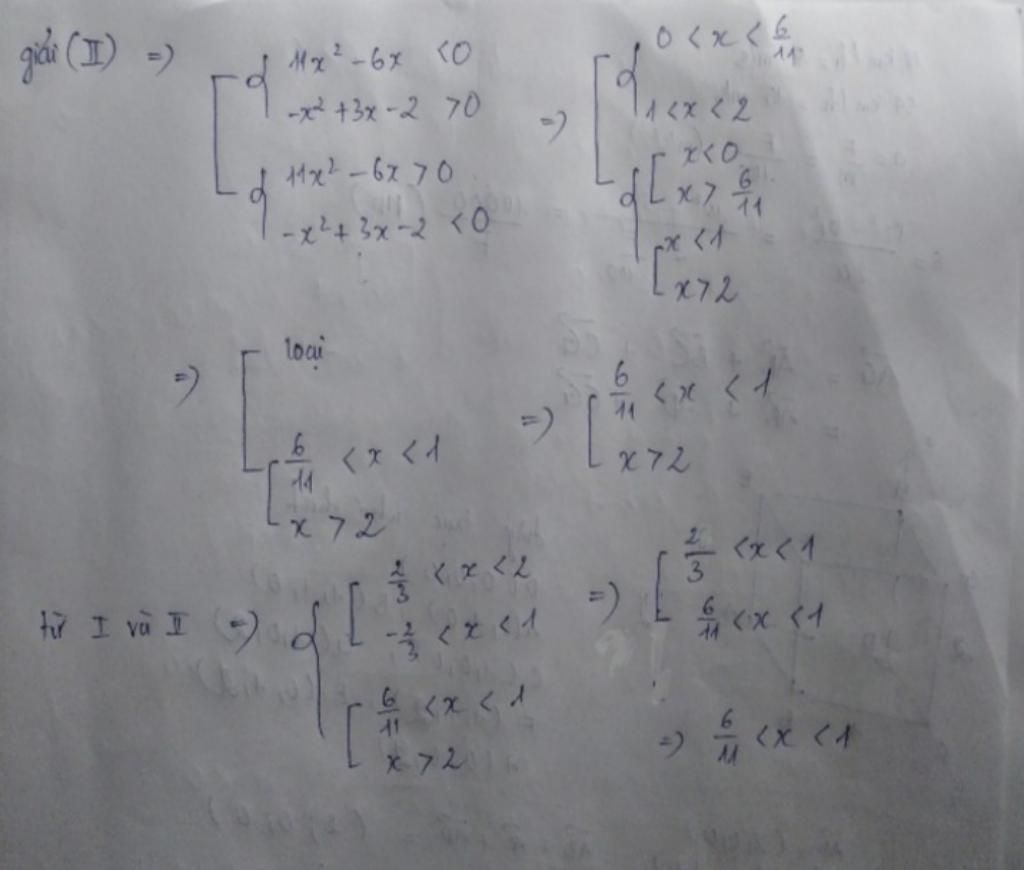 giải (II) => 11x² - 6x < 0
-x² + 3x - 2 > 0
11x² - 6x > 0
-x² + 3x - 2 < 0
=> 0 < x < 6/11
1 < x < 2
x < 0
x > 6/11
x < 1
x > 2
=> loại
6/11 < x < 1
x > 2
=> 6/11 < x < 1
x > 2
từ I và II => 2/3 < x < 2
-2/3 < x < 1
6/11 < x < 1
x > 2
=> 2/3 < x < 1
6/11 < x < 1
=> 6/11 < x < 1